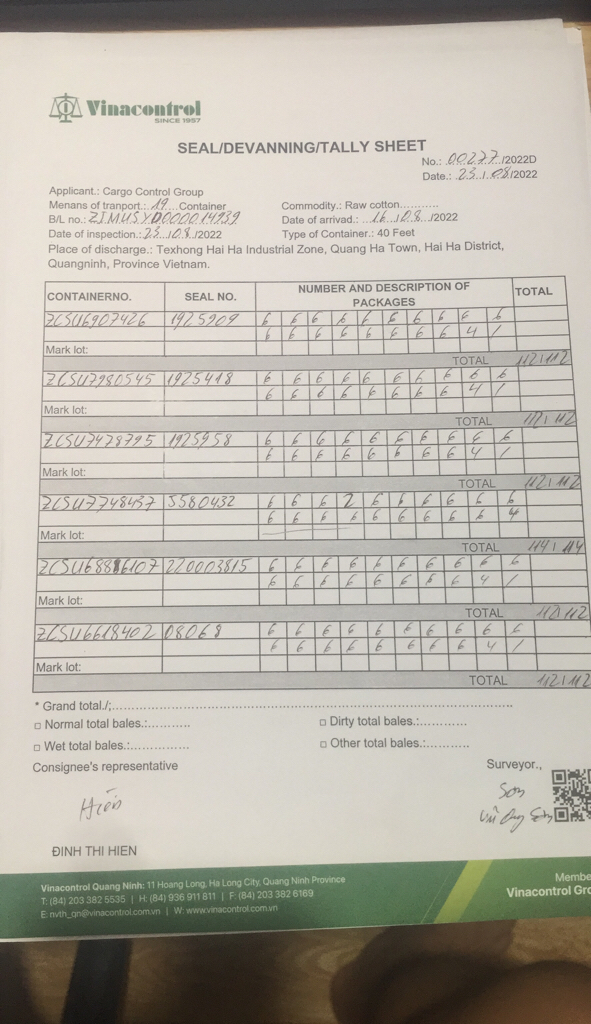 Vinacontrol
SINCE 1957
SEAL/DEVANNING/TALLY SHEET
No.: 00277/2022D
Date.: 23/08/2022
Applicant.: Cargo Control Group
Menans of tranport.: 19 Container
Commodity.: Raw cotton
B/L no.: ZIMUSYD000014939
Date of arrivad.: 16/08/2022
Date of inspection.: 23/08/2022
Type of Container.: 40 Feet
Place of discharge.: Texhong Hai Ha Industrial Zone, Quang Ha Town, Hai Ha District,
Quangninh, Province Vietnam.
CONTAINERNO. SEAL NO. NUMBER AND DESCRIPTION OF PACKAGES TOTAL
ZCSU6907426 1925909 6 6 6 6 6 6 6 6 6 6
6 6 6 6 6 6 6 6 4 /
Mark lot:
TOTAL 112/112
ZCSU7980545 1925418 6 6 6 6 6 6 6 6 6 6
6 6 6 6 6 6 6 6 4 /
Mark lot:
TOTAL 112/112
ZCSU7478795 1925958 6 6 6 6 6 6 6 6 6 6
6 6 6 6 6 6 6 6 4 /
Mark lot:
TOTAL 112/112
ZCSU7748437 5580432 6 6 6 2 6 6 6 6 6 6
6 6 6 6 6 6 6 6 6 4
Mark lot:
TOTAL 114/114
ZCSU6886107 220003815 6 6 6 6 6 6 6 6 6 6
6 6 6 6 6 6 6 6 4 /
Mark lot:
TOTAL 112/112
ZCSU6618402 08068 6 6 6 6 6 6 6 6 6 6
6 6 6 6 6 6 6 6 4 /
Mark lot:
TOTAL 112/112
* Grand total./;
□ Normal total bales.:
□ Dirty total bales.:
□ Wet total bales.:
□ Other total bales.:
Consignee's representative
Surveyor.,
Hiền
Sơn
ĐINH THI HIEN
Vinacontrol Quang Ninh: 11 Hoang Long, Ha Long City, Quang Ninh Province
T: (84) 203 382 5535 | H: (84) 936 911 811 | F: (84) 203 382 6169
E: nvth_qn@vinacontrol.com.vn | W: www.vinacontrol.com.vn
Membe
Vinacontrol Gro